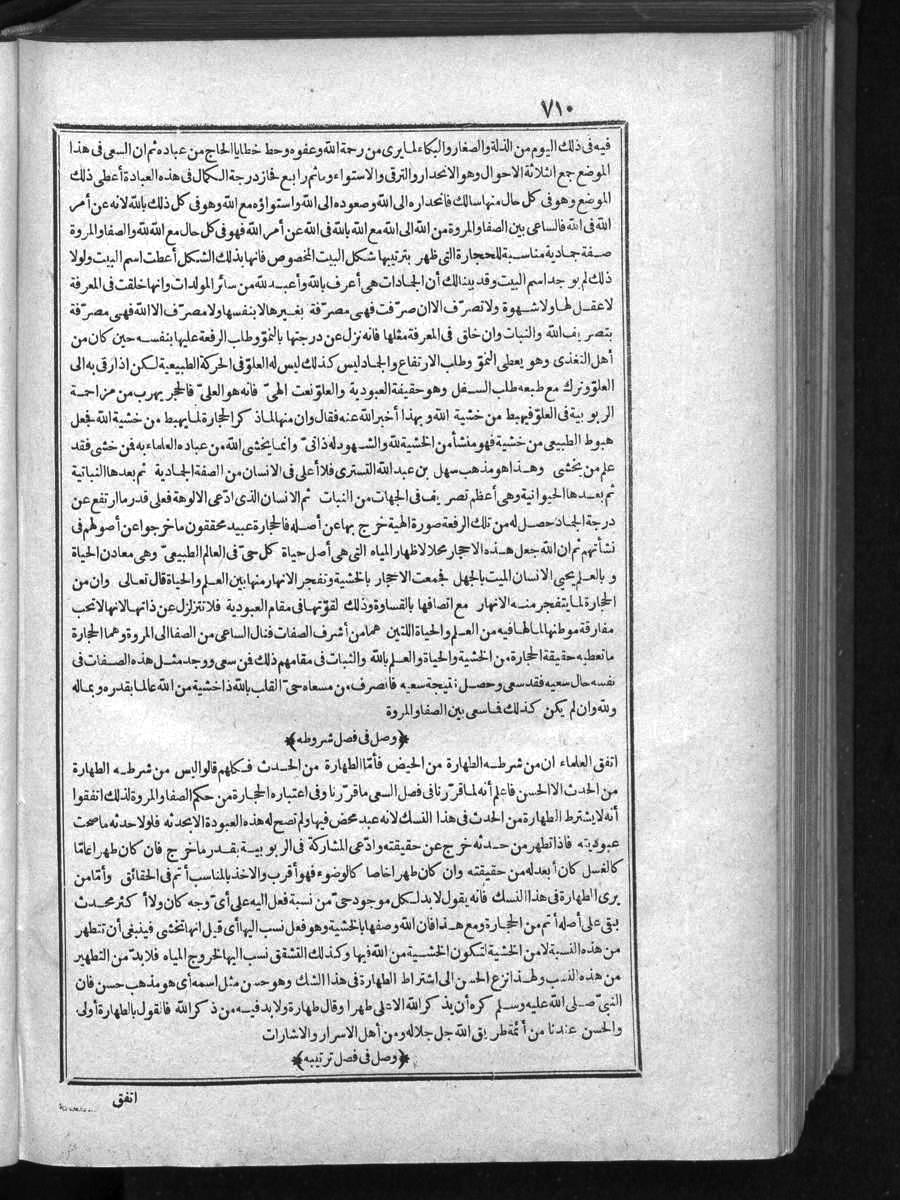 ٧١٠
فيه فى ذلك اليوم من الذلة والصغار والبكاء لما يرى من رحمة الله وعفوه وحط خطايا الحاج من عباده ثم ان السعى فى هذا
الموضع جمع الثلاثة الاحوال وهو الانحدار والترقى والاستواء وماثم رابع فحاز درجة الكمال فى هذه العبادة أعطى ذلك
الموضع وهو فى كل حال منها سالك فانحداره الى الله وصعوده الى الله واستواؤه مع الله وهو فى كل ذلك بالله لانه عن أمر
الله فى الله فالساعى بين الصفا والمروة من الله الى الله مع الله بالله فى الله عن أمر الله فهو فى كل حال مع الله لله والصفا والمروة
صفة جمادية مناسبة للحجارة التى ظهر بترتيبها شكل البيت المخصوص فانها بذلك الشكل أعطت اسم البيت ولولا
ذلك لم يوجد اسم البيت وقد بينا لك أن الجمادات هى أعرف بالله وأعبد لله من سائر المولدات وانها خلقت فى المعرفة
لا عقل لها ولا شهوة ولا تصرّف الا ان صرّفت فهى مصرّفة بغيرها لا بنفسها ولا مصرّف الا الله فهى مصرّفة
بتصريف الله والنبات وان خلق فى المعرفة مثلها فانه نزل عن درجتها بالنموّ وطلب الرفعة عليها بنفسه حين كان من
أهل التغذى وهو يعطى النموّ وطلب الارتفاع والجماد ليس كذلك ليس له العلوّ فى الحركة الطبيعية لكن اذا رقى به الى
العلوّ وترك مع طبعه طلب السفل وهو حقيقة العبودية والعلوّ نعت الهىّ فانه هو العلىّ فالحجر يهرب من مزاحمة
الربوبية فى العلوّ فيهبط من خشية الله وبهذا أخبر الله عنه فقال وان منها لما ذكر الحجارة لما يهبط من خشية الله فجعل
هبوط الطبيعى من خشية فهو منشأ من الخشية لله والشهود له ذاتىّ وانما يخشى الله من عباده العلماء به فمن خشى فقد
علم من يخشى وهذا هو مذهب سهل بن عبد الله التسترى فلا أعلى فى الانسان من الصفة الجمادية ثم بعدها النباتية
ثم بعدها الحيوانية وهى أعظم تصريف فى الجهات من النبات ثم الانسان الذى ادّعى الالوهة فعلى قدر ما ارتفع عن
درجة الجماد حصل له من تلك الرفعة صورة الهية خرج بها عن أصله فالحجارة عبيد محققون ما خرجوا عن أصولهم فى
نشأتهم ثم ان الله جعل هذه الاحجار محلا لاظهار المياه التى هى أصل حياة كل حىّ فى العالم الطبيعىّ وهى معادن الحياة
وبالعلم يحيى الانسان الميت بالجهل فجمعت الاحجار بالخشية وتفجر الانهار منها بين العلم والحياة قال تعالى وان من
الحجارة لما يتفجر منه الانهار مع اتصافها بالقساوة وذلك لقوّتها فى مقام العبودية فلا تتزلزل عن ذاتها لانها لا تحب
مفارقة موطنها لما لها فيه من العلم والحياة اللتين هما من أشرف الصفات فنال الساعى من الصفا الى المروة وهما الحجارة
ما تعطيه حقيقة الحجارة من الخشية والحياة والعلم بالله والثبات فى مقامهم ذلك فمن سعى ووجد مثل هذه الصفات فى
نفسه حال سعيه فقد سعى وحصل نتيجة سعيه فانصرف من مسعاه حىّ القلب بالله ذا خشية من الله عالما بقدره وبماله
ولله وان لم يكن كذلك فما سعى بين الصفا والمروة
﴿وصل فى فصل شروطه﴾
اتفق العلماء ان من شرطه الطهارة من الحيض فأمّا الطهارة من الحدث فكلهم قالوا ليس من شرطه الطهارة
من الحدث الا الحسن فاعلم أنه لما قرّرنا فى فصل السعى ما قرّرنا وفى اعتباره الحجارة من حكم الصفا والمروة لذلك اتفقوا
أنه لا يشترط الطهارة من الحدث فى هذا النسك لانه عبد محض فيها ولم تصح له هذه العبودة الا بحدثه فلولا حدثه ما صحت
عبوديته فاذا تطهر من حدثه خرج عن حقيقته وادّعى المشاركة فى الربوبية بقدر ما خرج فان كان طهرا عامّا
كالغسل كان أبعد له من حقيقته وان كان طهرا خاصا كالوضوء فهو أقرب والاخذ بالمناسب أتم فى الحقائق وأمّا من
يرى الطهارة فى هذا النسك فانه يقول لا بد لكل موجود حىّ من نسبة فعل اليه على أىّ وجه كان ولا أكثر محدث
بقى على أصله أتم من الحجارة ومع هذا فان الله وصفها بالخشية وهو فعل نسب اليها أى قيل انها تخشى فينبغى أن تتطهر
من هذه النسبة لا من الخشية لتكون الخشية من الله فيها وكذلك التشقق نسب اليها لخروج المياه فلا بدّ من التطهير
من هذه النسب ولهذا نزع الحسن الى اشتراط الطهارة فى هذا النسك وهو حسن مثل اسمه أى هو مذهب حسن فان
النبىّ صلى الله عليه وسلم كره أن يذكر الله الا على طهر أو قال طهارة ولا بد فيه من ذكر الله فالقول بالطهارة أولى
والحسن عندنا من أئمة طريق الله جل جلاله ومن أهل الاسرار والاشارات
﴿وصل فى فصل ترتيبه﴾
اتفق